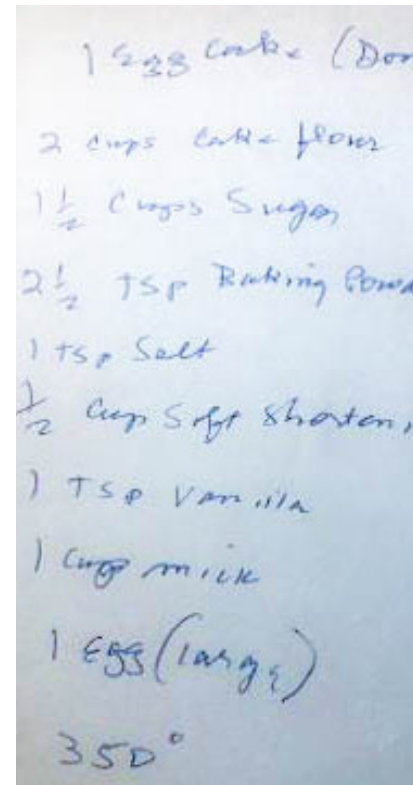 1 Egg Cake (Don
2 cups Cake flour
1 1/2 Cups Sugar
2 1/2 Tsp Baking Powd
1 Tsp Salt
1/2 Cup Soft Shorten
1 Tsp Vanilla
1 Cup milk
1 Egg (large)
350°